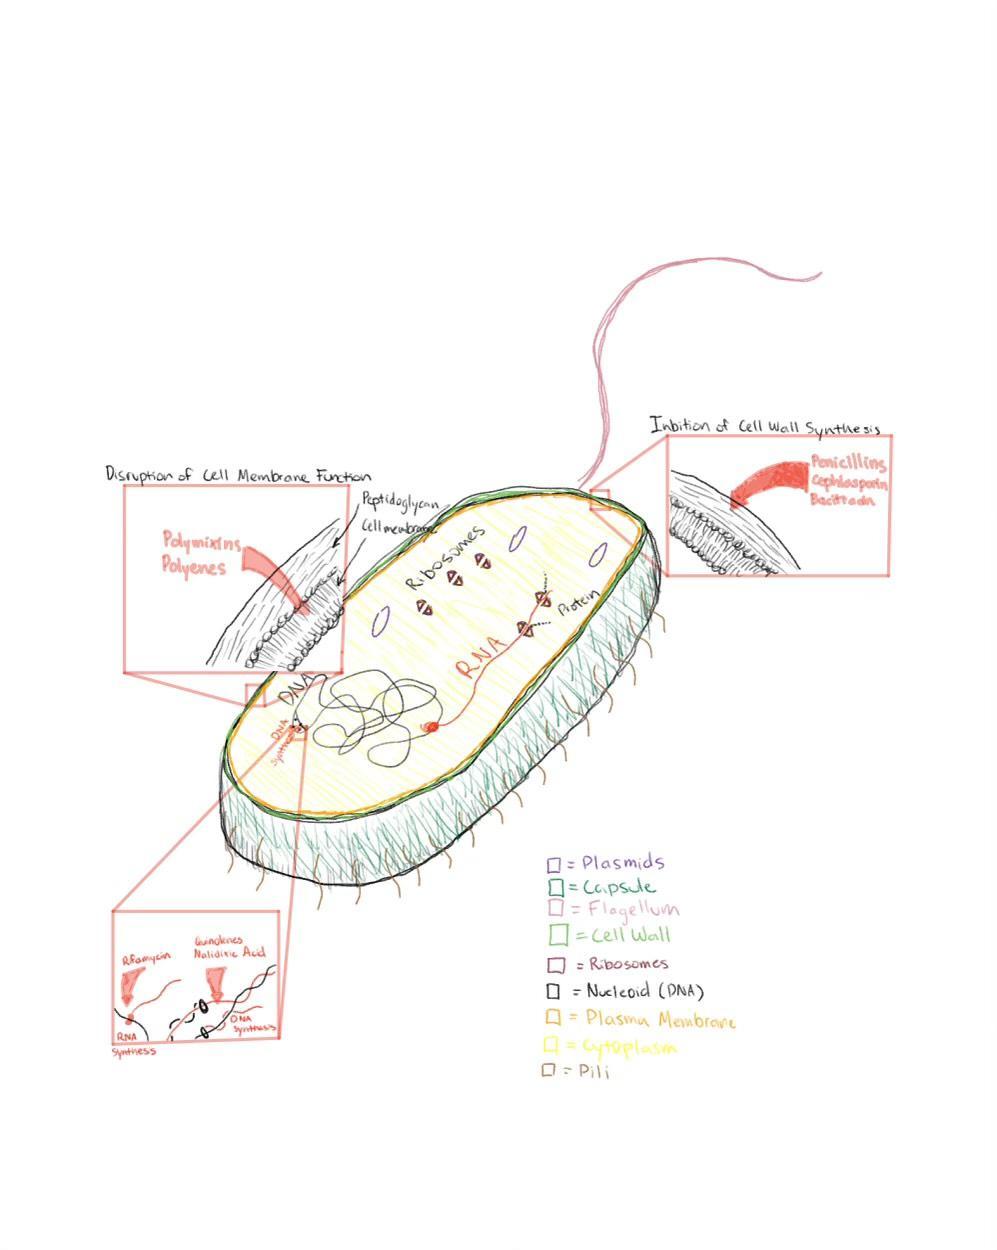 Inbition of Cell Wall Synthesis
Penicillins
Cephlosporin
Disruption of Cell Membrane Function
Peptidoglycan
Cell membrane
Polymixins
Polyenes
Ribosomes
Protein
RNA
DNA
DNA
Synthesis
Rifamycin
Quinolones
Nalidixic Acid
RNA
Synthesis
DNA
Synthesis
= Plasmids
= Capsule
= Flagellum
= Cell Wall
= Ribosomes
= Nucleoid (DNA)
= Plasma Membrane
= Cytoplasm
= Pili